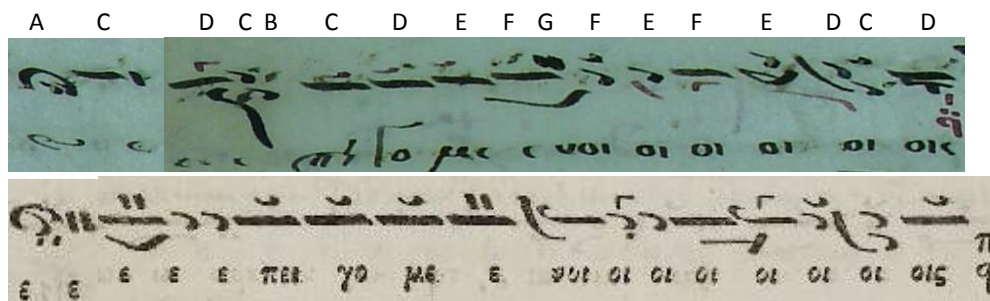 A C D C B C D E F G F E F E D C D
ε ε ε ε ε πι γο με ε νοι οι οι οι οι οις
ε ε ε ε ε πει γο με ε νοι οι οι οι οι οι οι οις